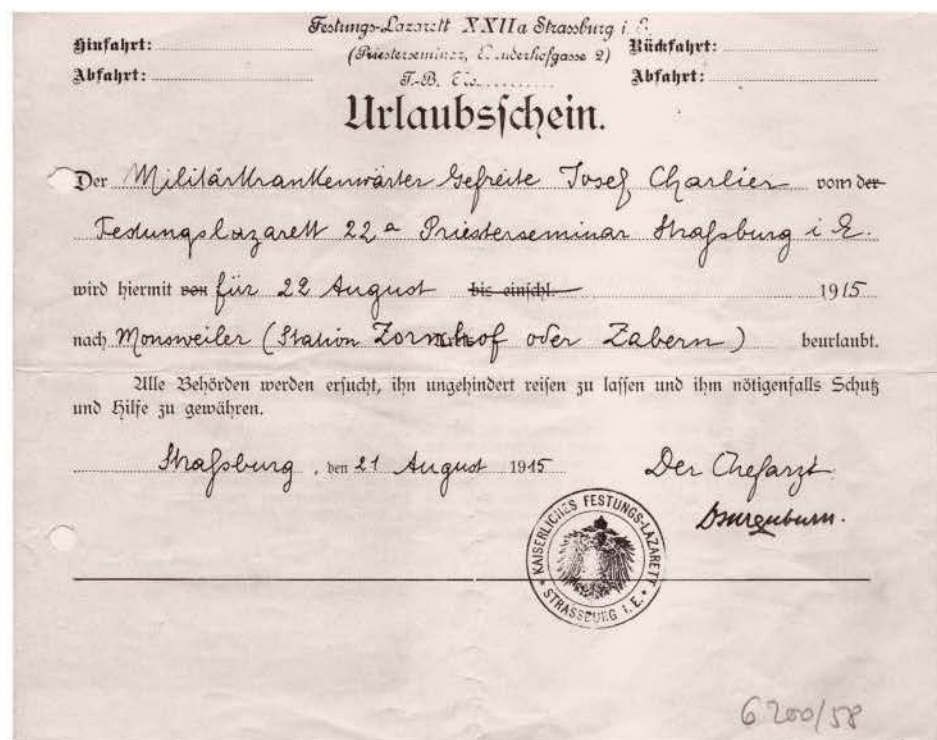 Festungs-Lazarett XXIIa Strassburg i. E.
Hinfahrt: Rückfahrt:
(Priesterseminar, 2)
Abfahrt: Abfahrt:
T.-B.
Urlaubsschein.
Der Militärkrankenwärter Gefreite Josef Charlier vom der
Festungslazarett 22a Priesterseminar Straßburg i E.
wird hiermit von für 22 August bis einschl. 1915
nach Monsweiler (Station Zornhof oder Zabern) beurlaubt.
Alle Behörden werden ersucht, ihn ungehindert reisen zu lassen und ihm nötigenfalls Schutz
und Hilfe zu gewähren.
Straßburg, den 21 August 1915 Der Chefarzt
KAISERLICHES FESTUNGS-LAZARETT
STRASSBURG i. E.
6200/58